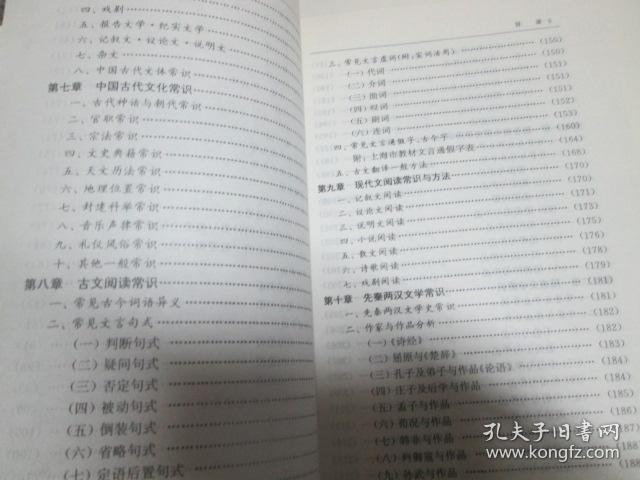 四、戏剧
五、报告文学·纪实文学
六、记叙文·议论文·说明文
七、杂文
八、中国古代文体常识
第七章 中国古代文化常识
一、古代神话与朝代常识
二、官职常识
三、宗法常识
四、文史典籍常识
五、天文历法常识
六、地理位置常识
七、封建科举常识
八、音乐声律常识
九、礼仪风俗常识
十、其他一般常识
第八章 古文阅读常识
一、常见古今词语异义
二、常见文言句式
（一）判断句式
（二）疑问句式
（三）否定句式
（四）被动句式
（五）倒装句式
（六）省略句式
（七）定语后置句式
目 录 5
三、常见文言虚词(附:实词活用) (150)
（一）代词 (150)
（二）介词 (151)
（三）助词
（四）叹词 (155)
（五）副词 (155)
（六）连词
四、常见文言通假字、古今字 (160)
附：上海市教材文言通假字表 (164)
五、古文翻译一般方法 (168)
第九章 现代文阅读常识与方法 (170)
一、记叙文阅读 (170)
二、议论文阅读 (171)
三、说明文阅读 (173)
四、小说阅读 (175)
五、散文阅读 (176)
六、诗歌阅读 (178)
七、戏剧阅读 (179)
第十章 先秦两汉文学常识 (181)
一、先秦两汉文学史常识 (181)
二、作家与作品分析 (182)
（一）《诗经》 (182)
（二）屈原与《楚辞》 (183)
（三）孔子及弟子与作品《论语》 (184)
（四）庄子及后学与作品 (184)
（五）孟子与作品 (185)
（六）荀况与作品 (186)
（七）韩非与作品 (187)
（八）列御寇与作品
（九）孙武与作品 (188
孔夫子旧书网
www.kongfz.com